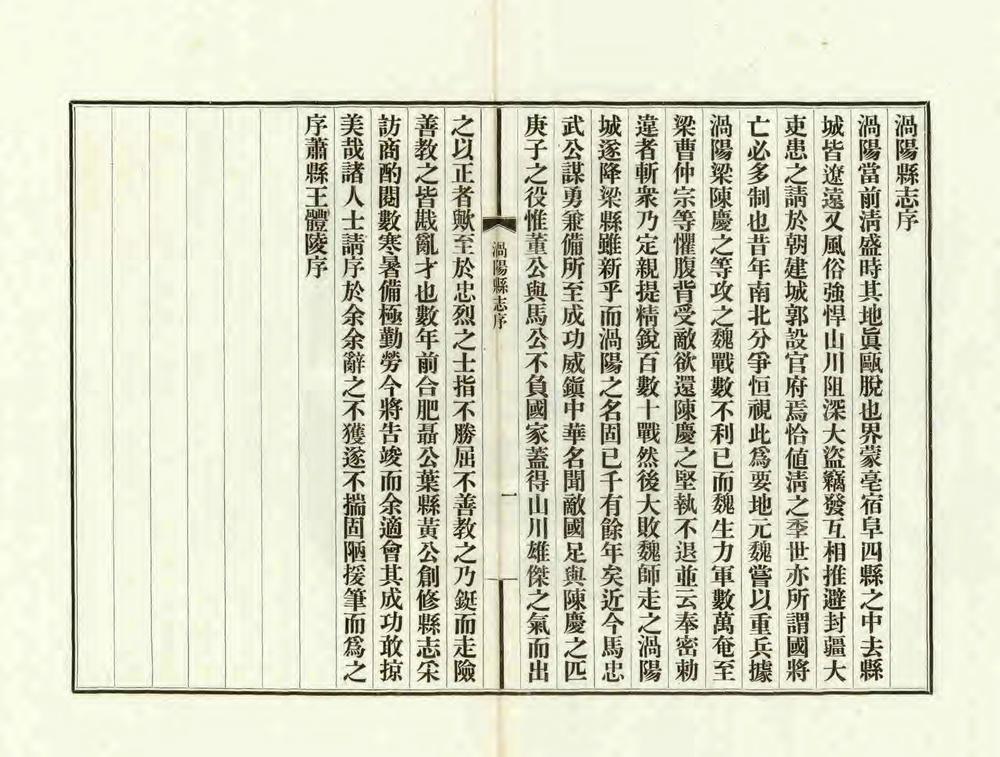 渦陽縣志序
渦陽當前清盛時其地眞甌脫也界蒙亳宿阜四縣之中去縣
城皆遼遠又風俗強悍山川阻深大盜竊發互相推避封疆大
吏患之請於朝建城郭設官府焉恰値清之季世亦所謂國將
亡必多制也昔年南北分爭恒視此爲要地元魏嘗以重兵據
渦陽梁陳慶之等攻之魏戰數不利已而魏生力軍數萬奄至
梁曹仲宗等懼腹背受敵欲還陳慶之堅執不退並云奉密勅
違者斬衆乃定親提精銳百數十戰然後大敗魏師走之渦陽
城遂降梁縣雖新乎而渦陽之名固已千有餘年矣近今馬忠
武公謀勇兼備所至成功威鎭中華名聞敵國足與陳慶之匹
庚子之役惟董公與馬公不負國家蓋得山川雄傑之氣而出
渦陽縣志序
一
之以正者歟至於忠烈之士指不勝屈不善教之乃鋌而走險
善教之皆戡亂才也數年前合肥聶公葉縣黃公創修縣志采
訪商酌閱數寒暑備極勤勞今將告竣而余適會其成功敢掠
美哉諸人士請序於余余辭之不獲遂不揣固陋援筆而爲之
序蕭縣王體陵序